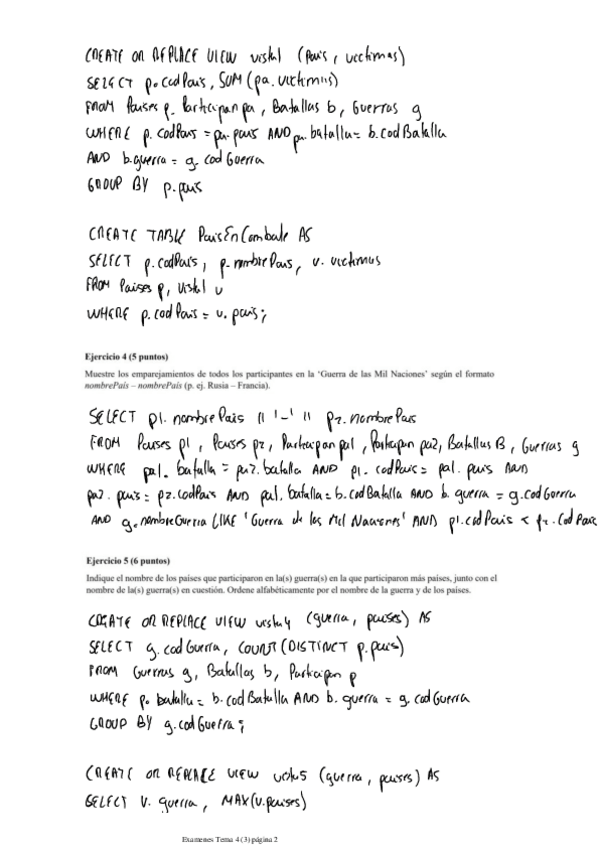 CREATE OR REPLACE VIEW vista1 (pais, victimas)
SELECT p.codPais, SUM(pa.victimas)
FROM Paises p, Participan pa, Batallas b, Guerras g
WHERE p.codPais = pa.pais AND pa.batalla = b.codBatalla
AND b.guerra = g.codGuerra
GROUP BY p.pais
CREATE TABLE PaisEnCombate AS
SELECT p.codPais, p.nombrePais, v.victimas
FROM Paises p, vista1 v
WHERE p.codPais = v.pais;
Ejercicio 4 (5 puntos)
Muestre los emparejamientos de todos los participantes en la ‘Guerra de las Mil Naciones’ según el formato
nombrePaís – nombrePaís (p. ej. Rusia – Francia).
SELECT p1.nombrePais || '-' || p2.nombrePais
FROM Paises p1, Paises p2, Participan pa1, Participan pa2, Batallas B, Guerras g
WHERE pa1.batalla = pa2.batalla AND p1.codPais = pa1.pais AND
pa2.pais = p2.codPais AND pa1.batalla = b.codBatalla AND b.guerra = g.codGuerra
AND g.nombreGuerra LIKE 'Guerra de las Mil Naciones' AND p1.codPais < p2.codPais
Ejercicio 5 (6 puntos)
Indique el nombre de los países que participaron en la(s) guerra(s) en la que participaron más países, junto con el
nombre de la(s) guerra(s) en cuestión. Ordene alfabéticamente por el nombre de la guerra y de los países.
CREATE OR REPLACE VIEW vista4 (guerra, paises) AS
SELECT g.codGuerra, COUNT(DISTINCT p.pais)
FROM Guerras g, Batallas b, Participan p
WHERE p.batalla = b.codBatalla AND b.guerra = g.codGuerra
GROUP BY g.codGuerra;
CREATE OR REPLACE VIEW vista5 (guerra, paises) AS
SELECT v.guerra, MAX(v.paises)
Examenes Tema 4 (3) página 2